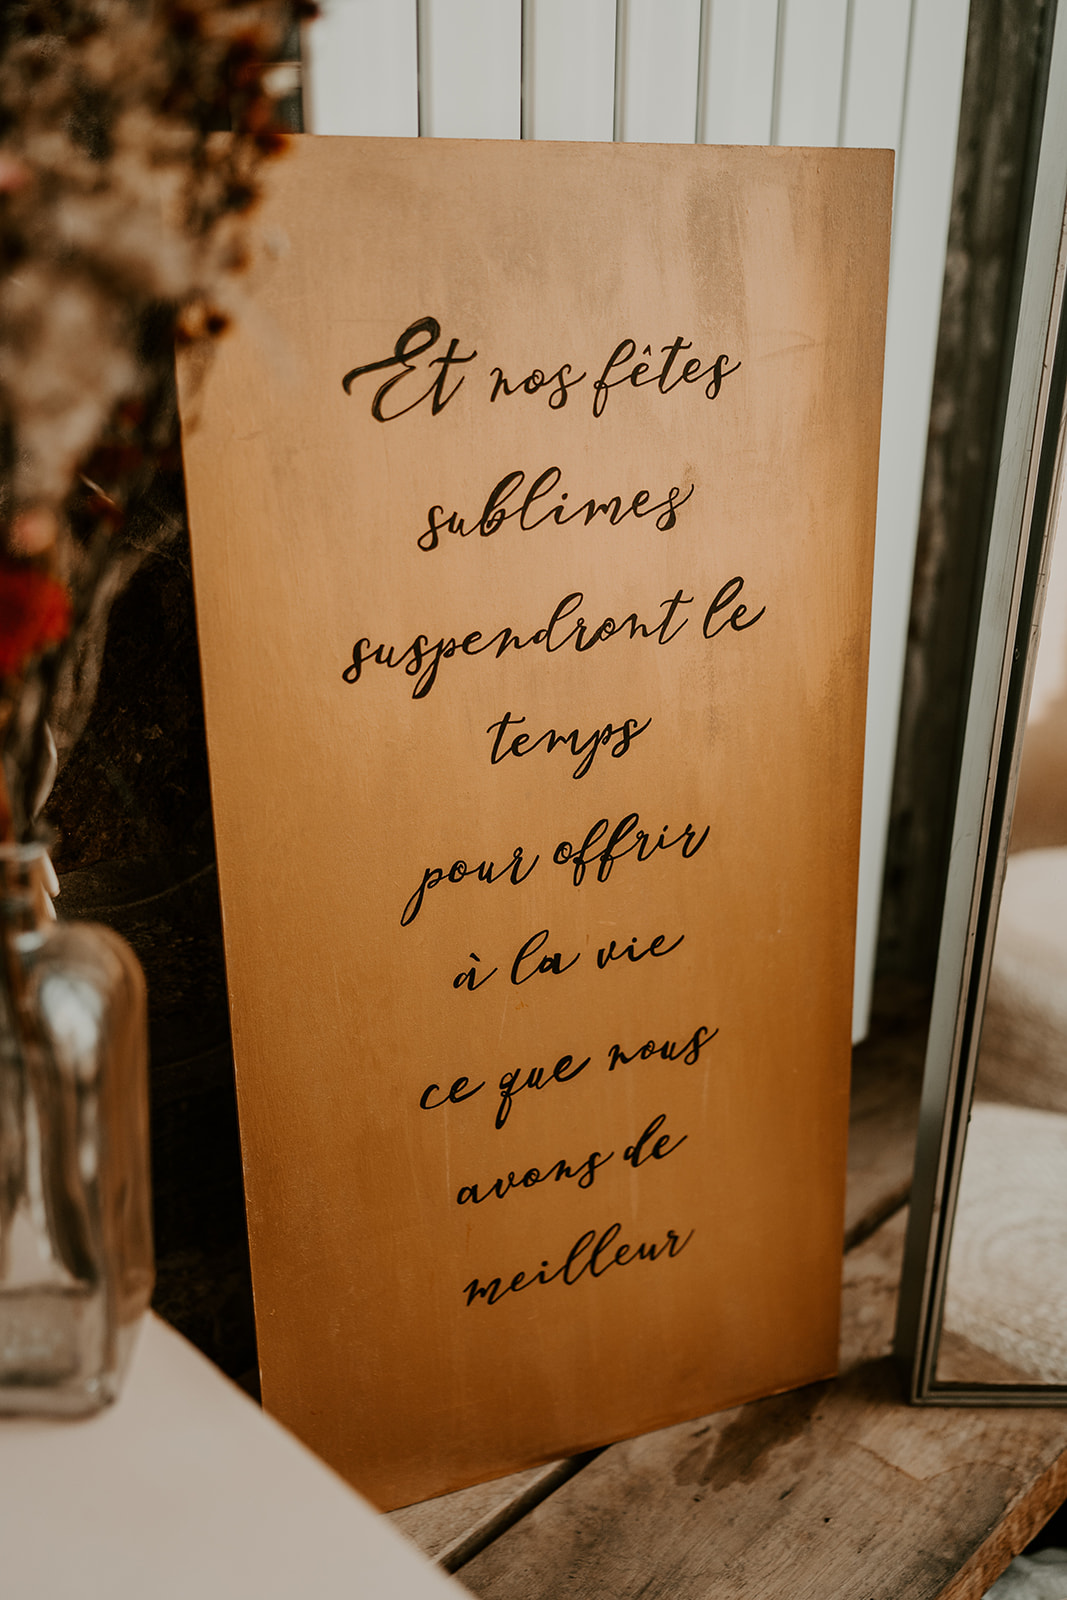 Et nos fêtes
sublimes
suspendront le
temps
pour offrir
à la vie
ce que nous
avons de
meilleur